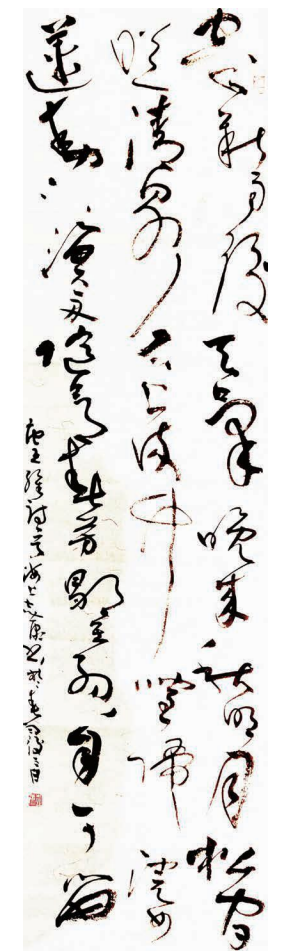 空山新雨後天氣晚來秋明月松間
照清泉石上流竹喧歸浣女
蓮動下漁舟隨意春芳歇王孫自可留
唐王維詩